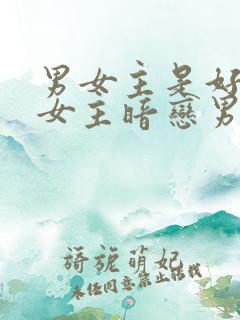 男女主是好
女主暗戀男
旖旎萌妃
未经同意禁止转载